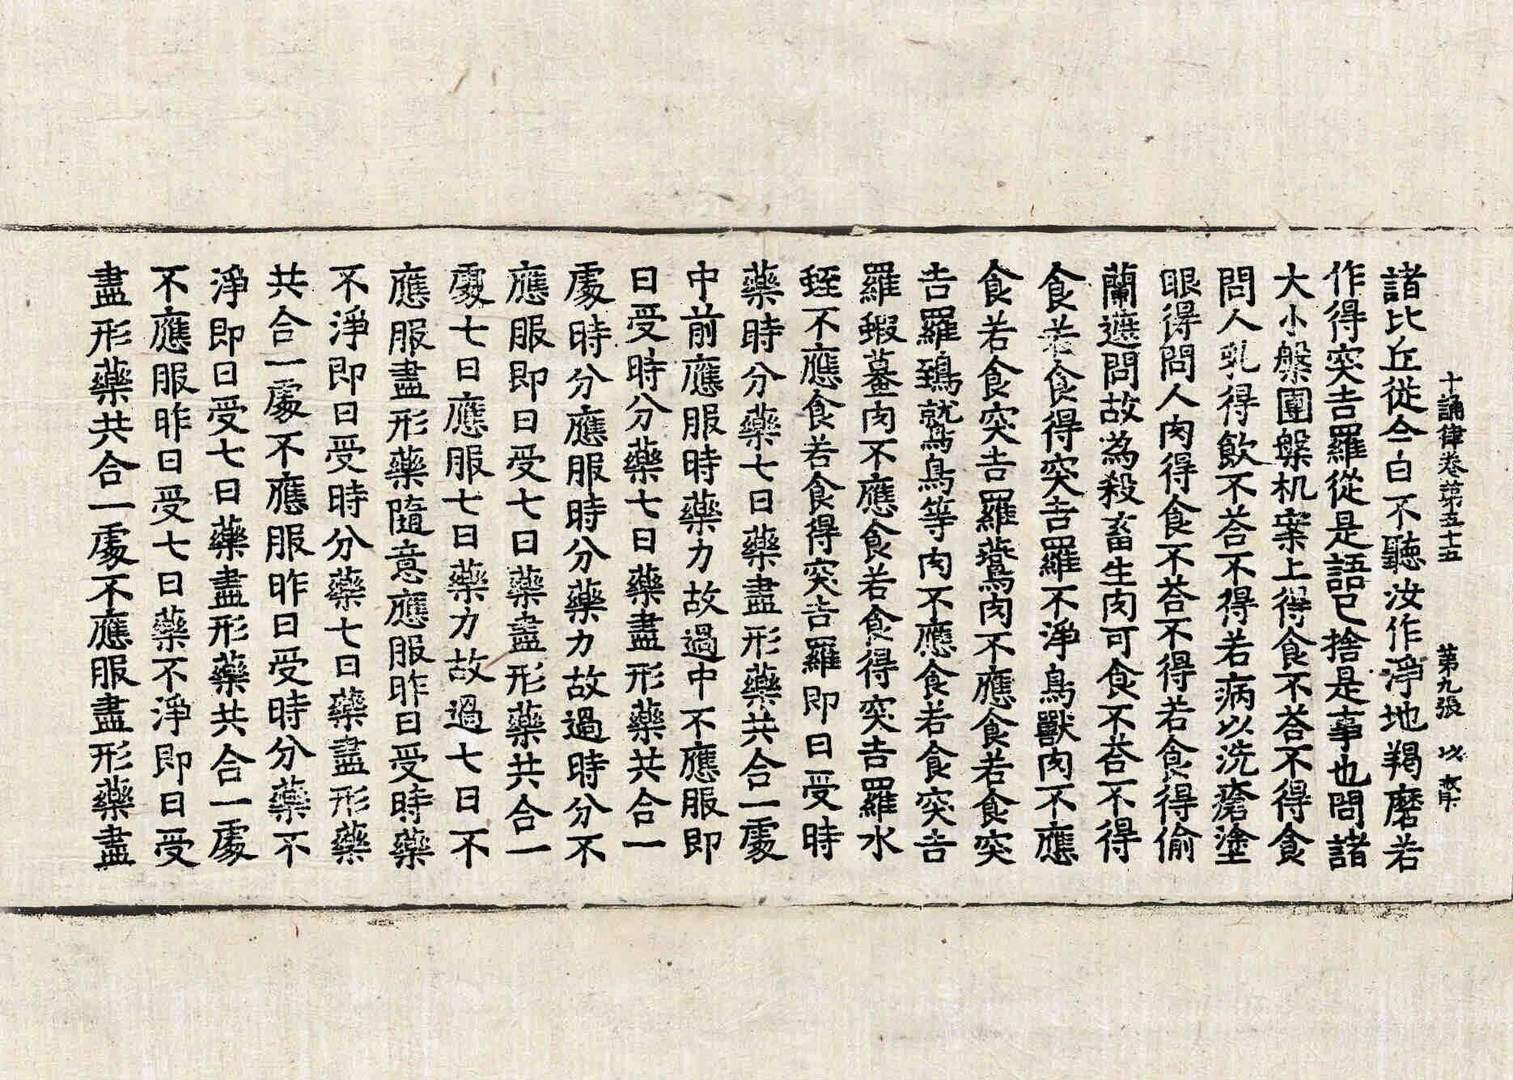 十誦律卷第五十五　第九張
諸比丘從今白不聽汝作淨地羯磨若
作得突吉羅從是語已捨是事也問諸
大小槃團槃机案上得食不荅不得食
問人乳得飲不荅不得若病以洗瘡塗
眼得問人肉得食不荅不得若食得偷
蘭遮問故為殺畜生肉可食不荅不得
食若食得突吉羅不淨鳥獸肉不應
食若食突吉羅鷰肉不應食若食突
吉羅鵄鷲鳥等肉不應食若食突吉
羅蝦蟇肉不應食若食得突吉羅水
蛭不應食若食得突吉羅即日受時
藥時分藥七日藥盡形藥共合一處
中前應服時藥力故過中不應服即
日受時分藥七日藥盡形藥共合一
處時分應服時分藥力故過時分不
應服即日受七日藥盡形藥共合一
處七日應服七日藥力故過七日不
應服盡形藥隨意應服昨日受時藥
不淨即日受時分藥七日藥盡形藥
共合一處不應服昨日受時分藥不
淨即日受七日藥盡形藥共合一處
不應服昨日受七日藥不淨即日受
盡形藥共合一處不應服盡形藥盡